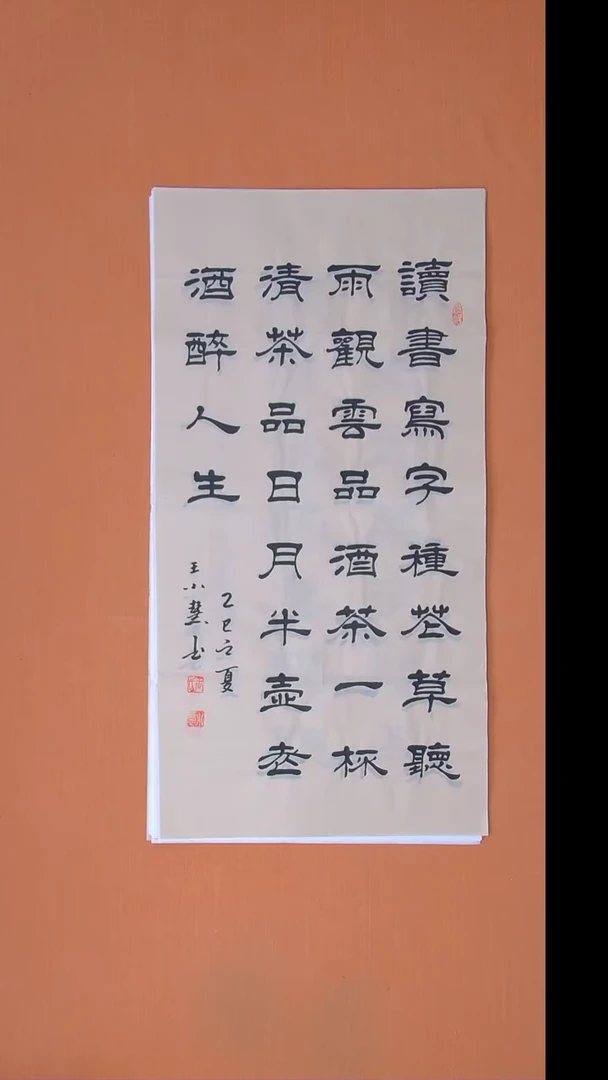 讀書寫字種花草聽
雨觀雲品酒茶一杯
清茶品日月半壺老
酒醉人生
乙巳立夏
王小书